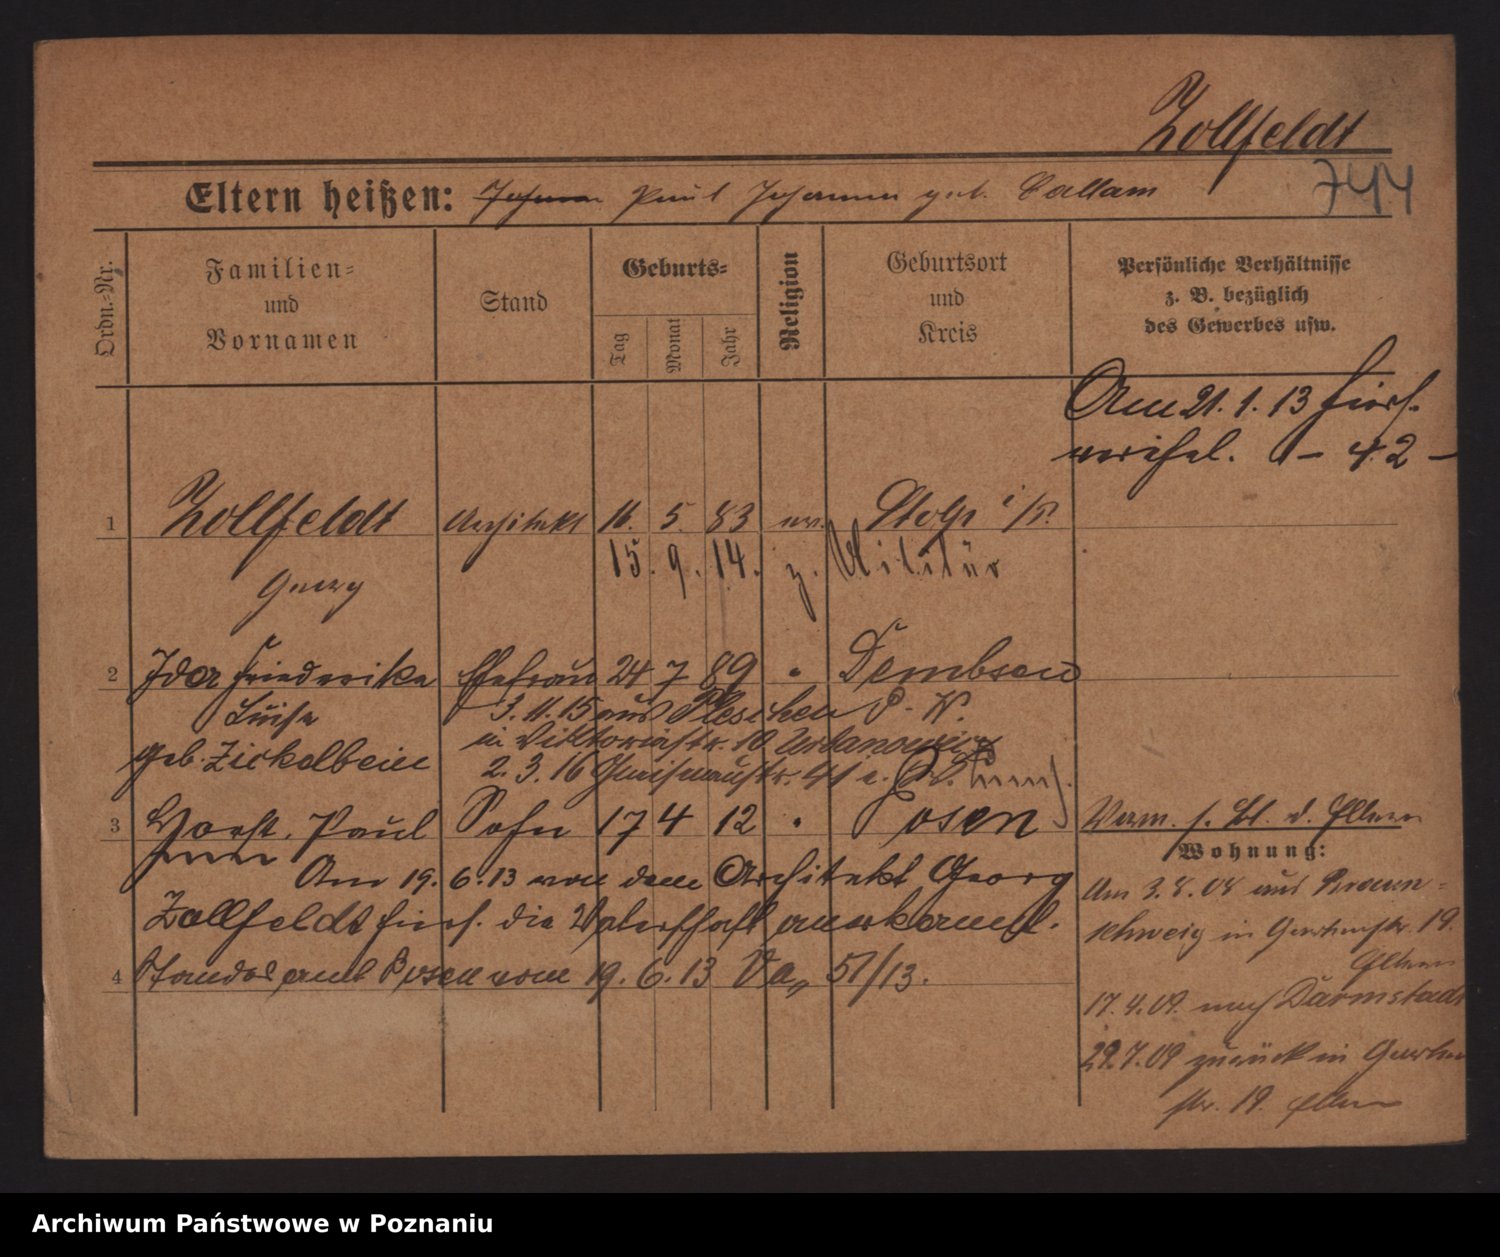 Zollfeldt
Eltern heißen: Johann Paul Johanna geb. Callam
744
Ordn.-Nr.
Familien-
und
Vornamen
Stand
Geburts-
Tag
Monat
Jahr
Religion
Geburtsort
und
Kreis
Persönliche Verhältnisse
z. B. bezüglich
des Gewerbes usw.
Am 21. 1. 13 hiers.
verehel. – 42 –
1 Zollfeldt Architekt 16. 5. 83 ev. Stolp i/P.
15. 9. 14. z. Militär
Georg
2 Ida Friederike Ehefrau 24 7 89 " Dembsen
Luise 3. 11. 15 aus Pleschen
geb. Zickelbein in Viktoriastr. 10
2. 3. 16 Gneisenaustr.
3 Horst, Paul Sohn 17 4 12 " Posen
Verm. s. Bl. d. Eltern
Wohnung:
Am 19. 6. 13 von dem Architekt Georg
Zollfeldt hiers. die Vaterschaft anerkannt.
4 Standesamt Posen vom 19. 6. 13 Va, 51/13.
Am 3. 8. 08 aus Braun-
schweig in str. 19.
Eltern
17. 4. 09. nach Darmstadt
29. 7. 09 zurück in
str. 19. Eltern
Archiwum Państwowe w Poznaniu